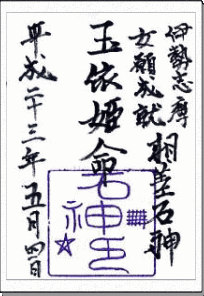 伊勢志摩
女願成就
相差石神
玉依姫命
石神
平成二十三年五月四日